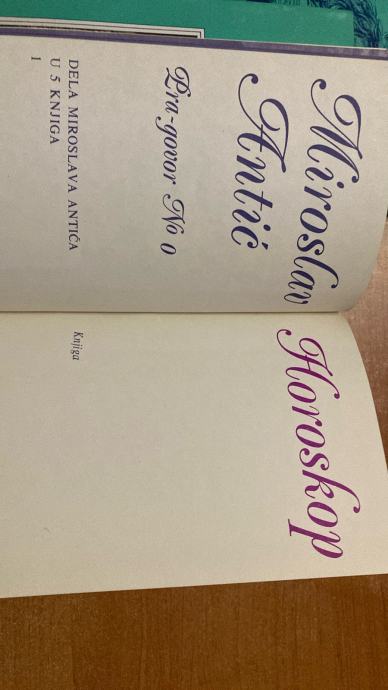 Miroslav
Antić
Pra-govor No 0
DELA MIROSLAVA ANTIĆA
U 5 KNJIGA
1
Horoskop
Knjiga